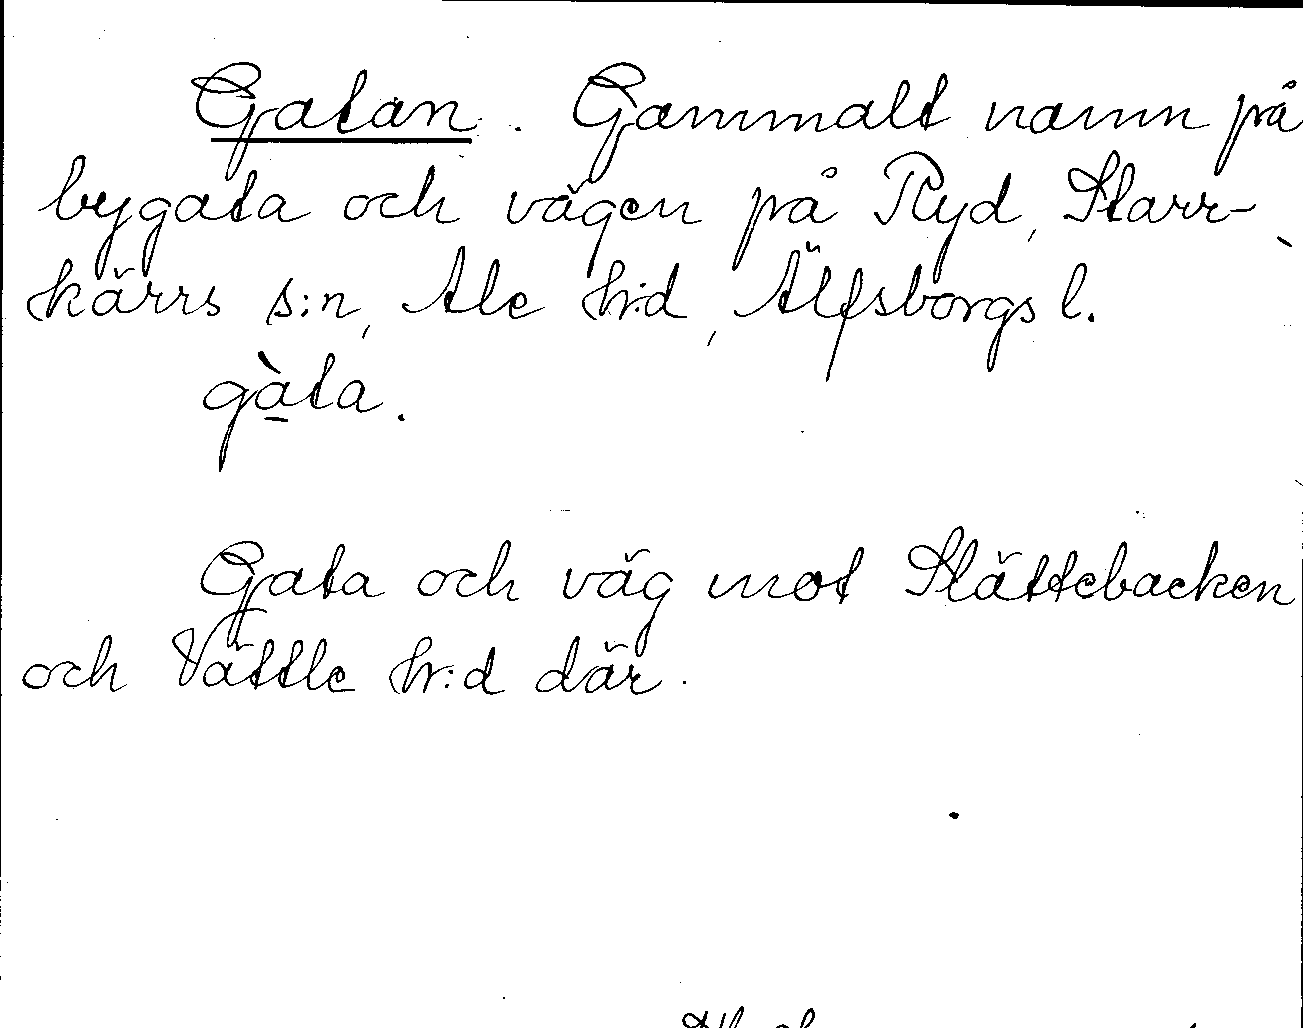 Gatan. Gammalt namn på
bygata och vägen på Ryd, Starr-
kärrs s:n, Ale h:d, Älfsborgs l.
gàta.
Gata och väg mot Slättebacken
och Vättle h:d där.